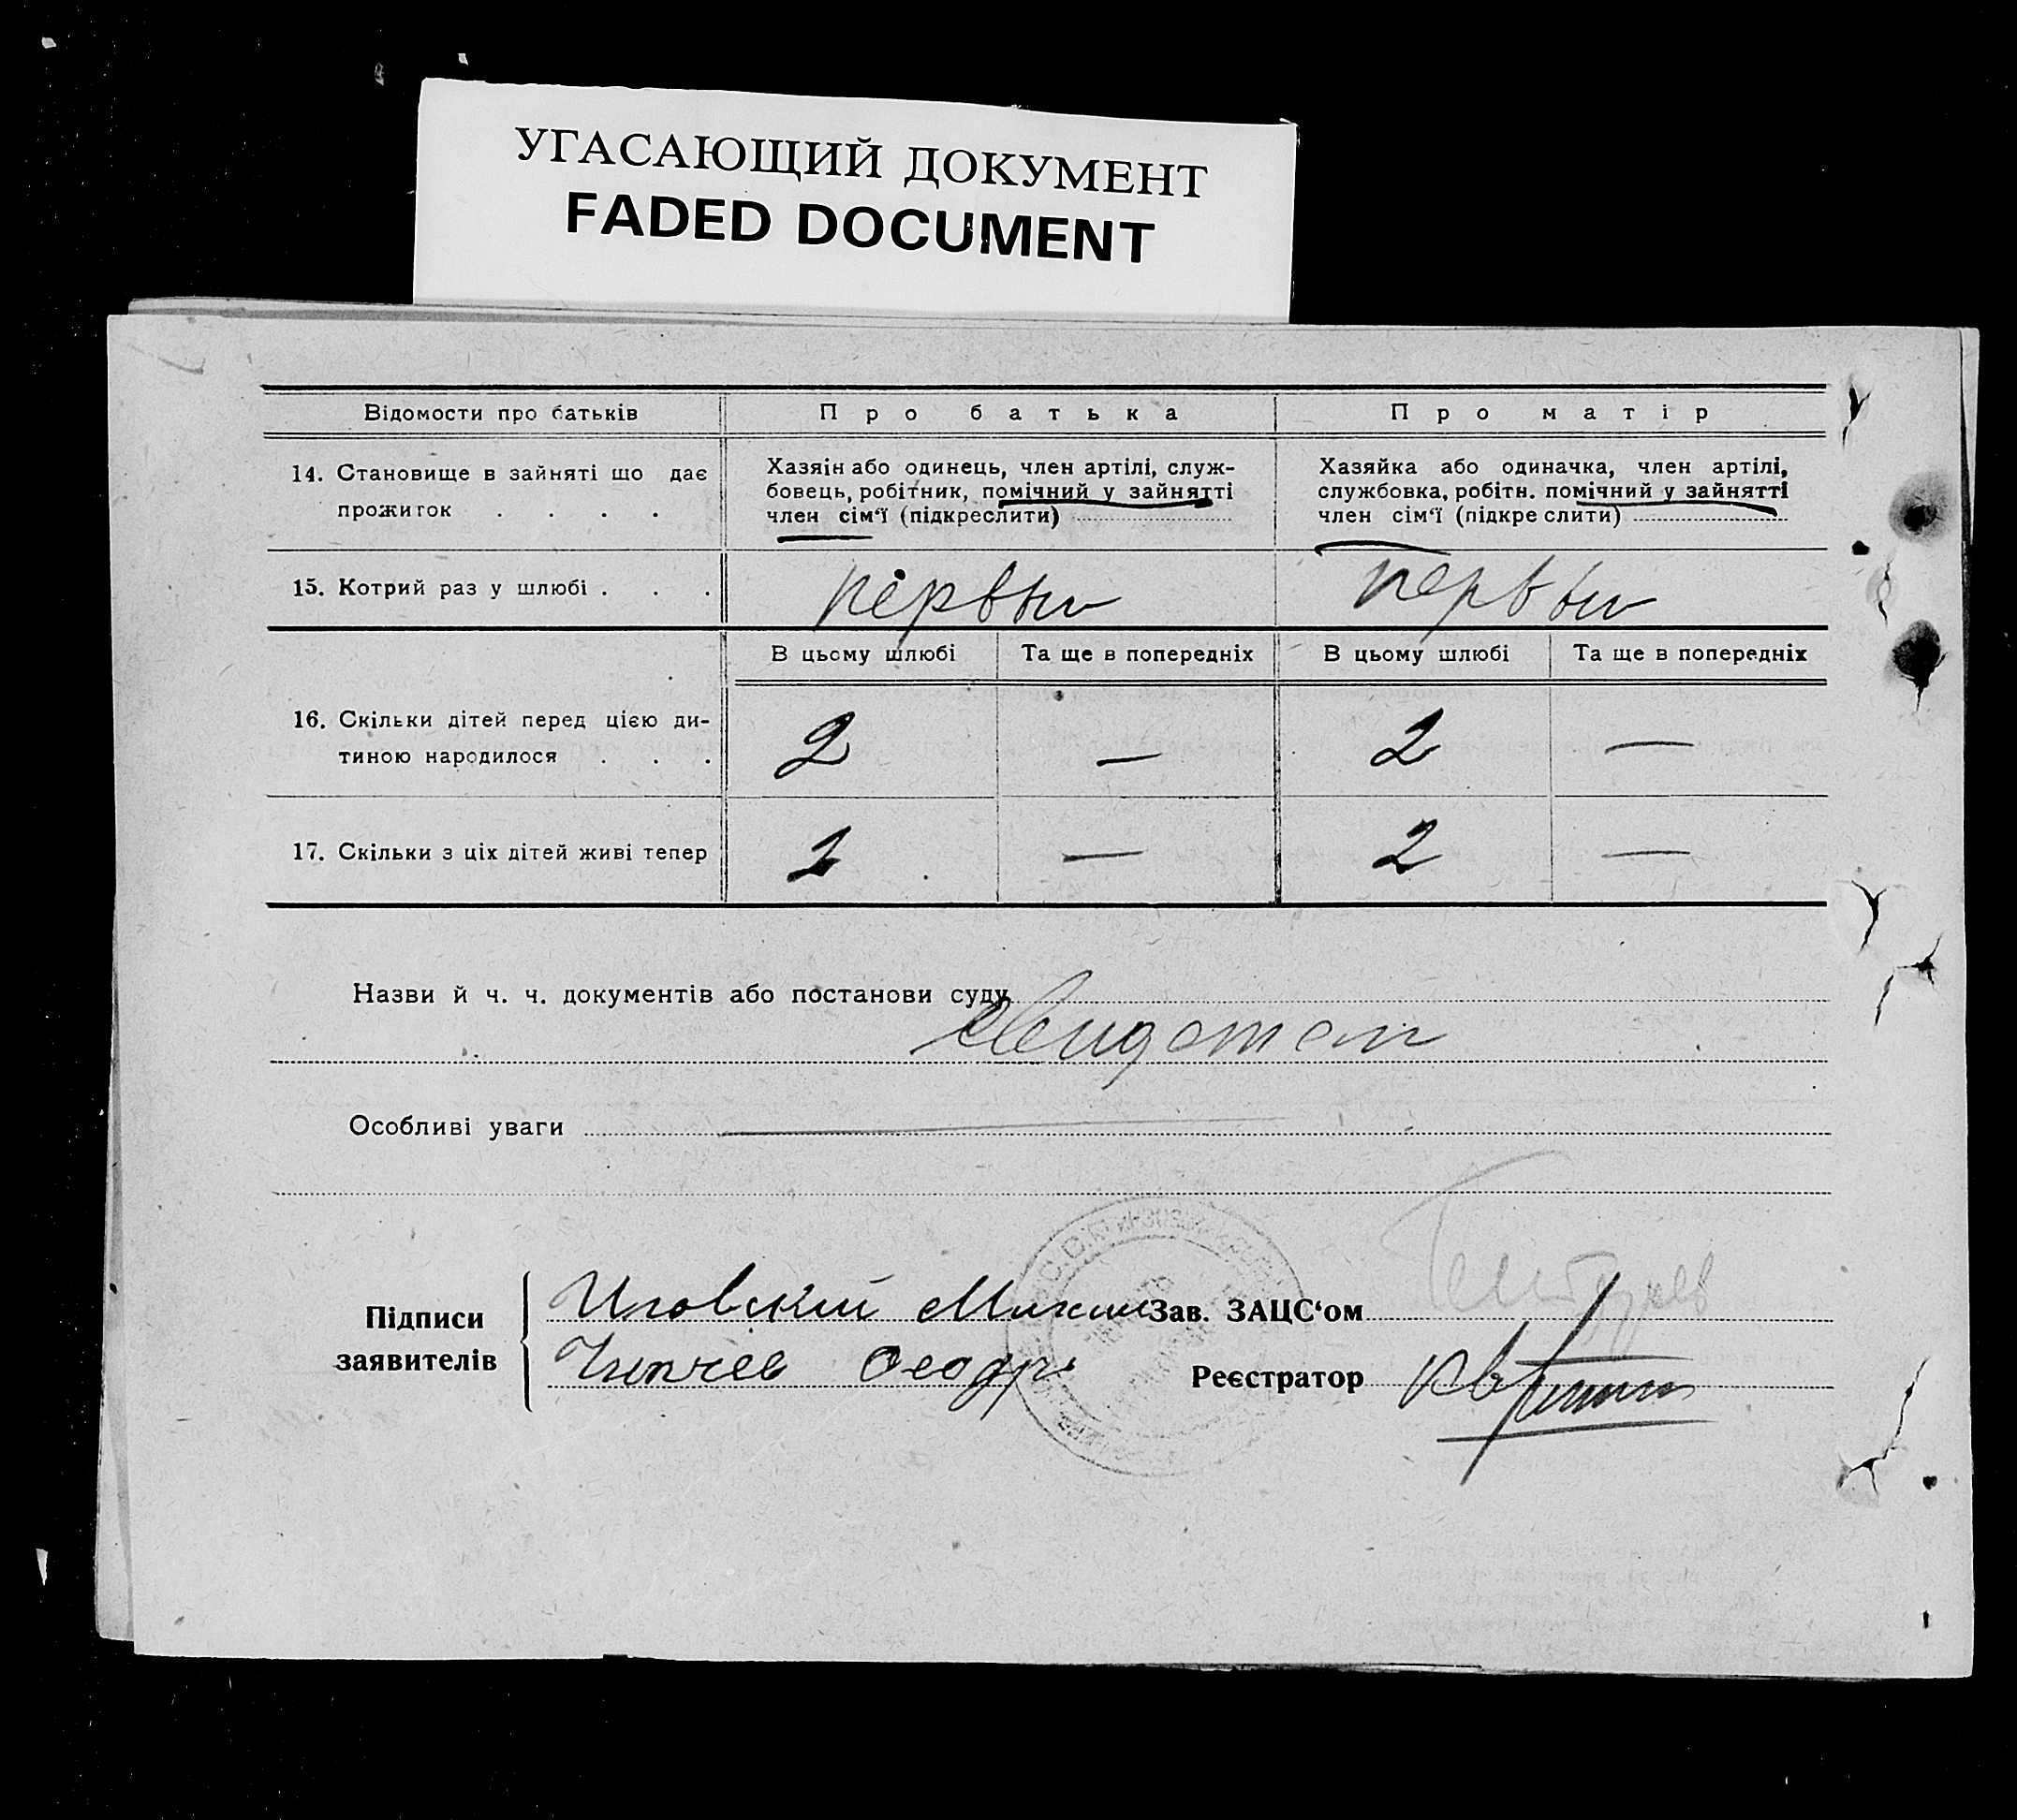 УГАСАЮЩИЙ ДОКУМЕНТ
FADED DOCUMENT
Відомости про батьків
Про батька
Про матір
14. Становище в зайняті що дає
прожиток . . . .
Хазяін або одинець, член артілі, служ-
бовець, робітник, помічний у зайнятті
член сім'ї (підкреслити)
Хазяйка або одиначка, член артілі,
службовка, робітн. помічний у зайнятті
член сім'ї (підкре слити)
15. Котрий раз у шлюбі . . .
первый
первый
В цьому шлюбі
Та ще в попередніх
В цьому шлюбі
Та ще в попередніх
16. Скільки дітей перед цією ди-
тиною народилося . . .
2
—
2
—
17. Скільки з ціх дітей живі тепер
1
—
2
—
Назви й ч. ч. документів або постанови суду
Особливі уваги
Підписи
заявителів
Зав. ЗАЦС'ом
Реєстратор